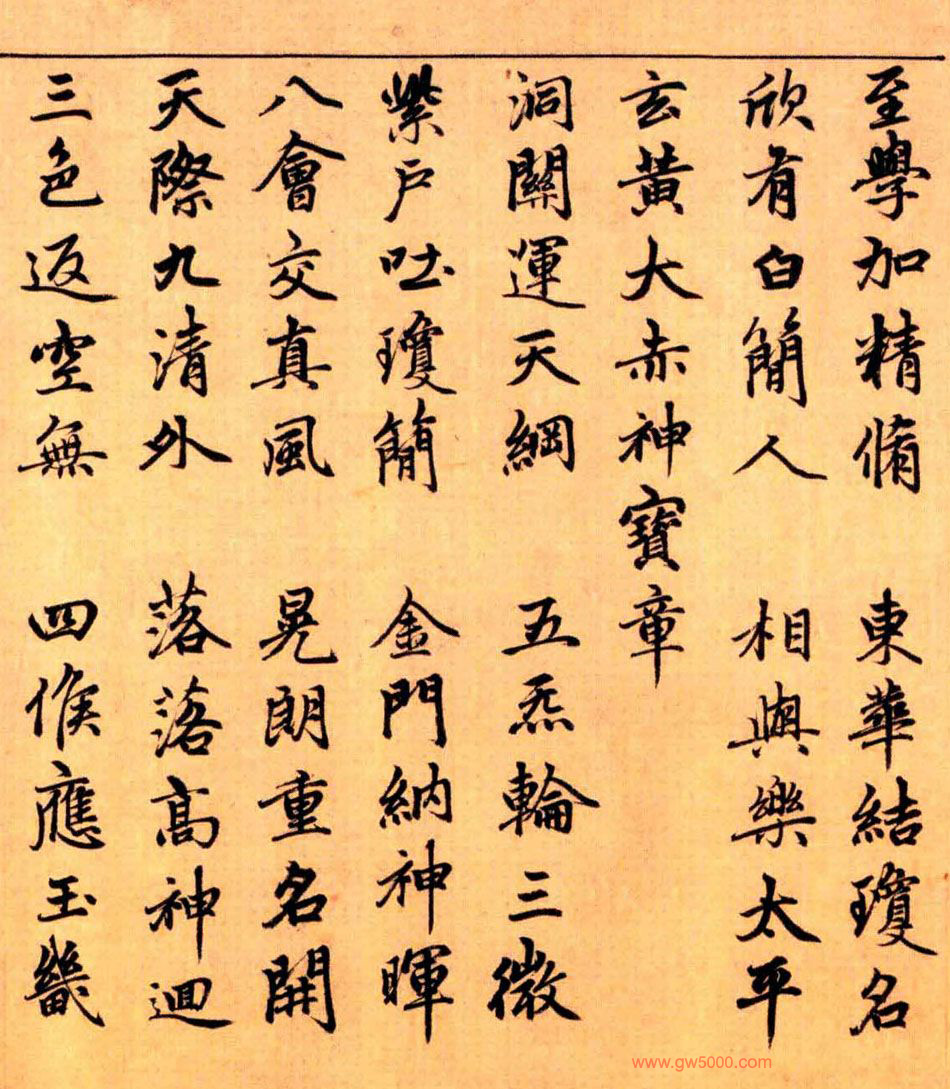 至學加精脩 東華結瓊名
欣有白簡人 相與樂太平
玄黃大赤神寶章
洞關運天綱 五炁輪三微
紫戶吐瓊簡 金門納神暉
八會交真風 晃朗重名開
天際九清外 落落高神迴
三色返空無 四候應玉畿
www.gw5000.com